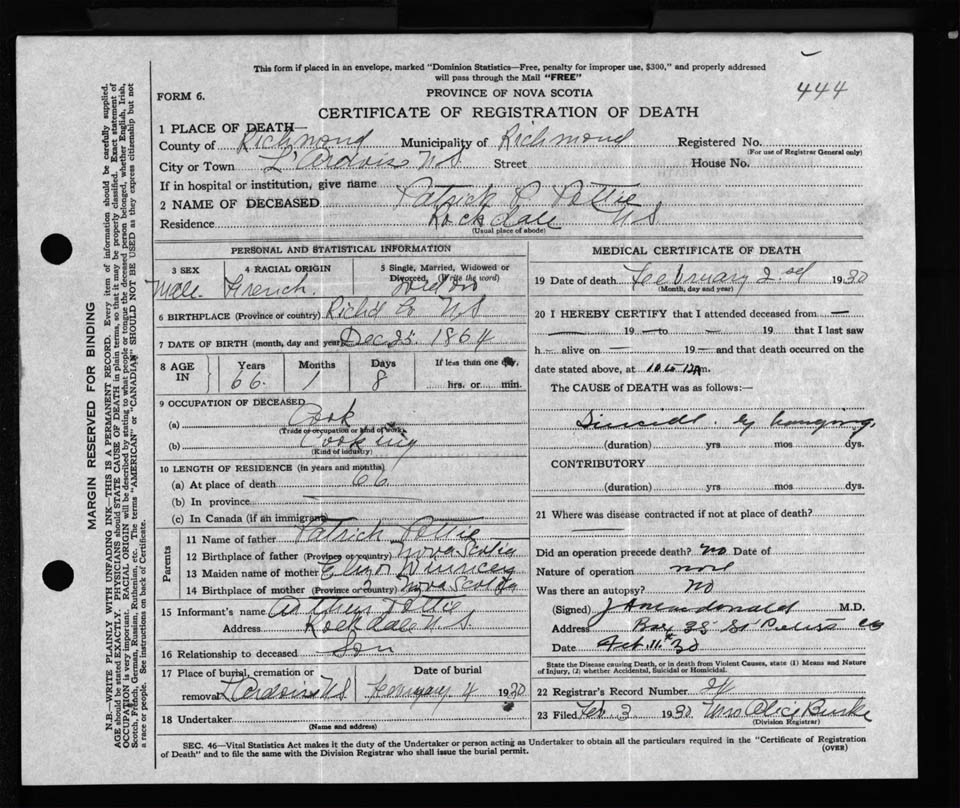 This form if placed in an envelope, marked "Dominion Statistics—Free, penalty for improper use, $300," and properly addressed
will pass through the Mail "FREE"
444
FORM 6.
PROVINCE OF NOVA SCOTIA
CERTIFICATE OF REGISTRATION OF DEATH
1 PLACE OF DEATH—
County of Richmond Municipality of Richmond Registered No.
(For use of Registrar General only)
City or Town L'Ardoise N S Street House No.
If in hospital or institution, give name
2 NAME OF DECEASED Patrick P. Pottie
Residence Rockdale N S
(Usual place of abode)
PERSONAL AND STATISTICAL INFORMATION
3 SEX
Male
4 RACIAL ORIGIN
French.
5 Single, Married, Widowed or
Divorced, (Write the word)
6 BIRTHPLACE (Province or country) Rich'd Co N S
7 DATE OF BIRTH (month, day and year) Dec 25 1864
8 AGE IN
Years 66. Months 1 Days 8
If less than one day,
hrs. or min.
9 OCCUPATION OF DECEASED
(a) Cook
(Trade or occupation or kind of work)
(b) Cooking
(Kind of industry)
10 LENGTH OF RESIDENCE (in years and months)
(a) At place of death 66
(b) In province
(c) In Canada (if an immigrant)
Parents
11 Name of father Patrick Pottie
12 Birthplace of father (Province or country) Nova Scotia
13 Maiden name of mother
14 Birthplace of mother (Province or country) Nova Scotia
15 Informant's name Pottie
Address Rockdale N S
16 Relationship to deceased Son
17 Place of burial, cremation or
removal L'Ardoise N S
Date of burial
4 1930
18 Undertaker
(Name and address)
MEDICAL CERTIFICATE OF DEATH
19 Date of death February 2nd 1930
(Month, day and year)
20 I HEREBY CERTIFY that I attended deceased from —
— 19 — to — 19 — that I last saw
h— alive on — 19 — and that death occurred on the
date stated above, at 10 to 12 A m.
The CAUSE of DEATH was as follows:—
Suicide by hanging
(duration) yrs mos dys.
CONTRIBUTORY
(duration) yrs. mos. dys.
21 Where was disease contracted if not at place of death?
Did an operation precede death? No Date of
Nature of operation none
Was there an autopsy? No
(Signed) M.D.
Address Box 35 St Peters CB
Date Feb. 11th 30
State the Disease causing Death, or in death from Violent Causes, state (1) Means and Nature
of Injury, (2) whether Accidental, Suicidal or Homicidal.
22 Registrar's Record Number 24
23 Filed Feb 3 1930 Mrs Alice Burke
(Division Registrar)
SEC. 46—Vital Statistics Act makes it the duty of the Undertaker or person acting as Undertaker to obtain all the particulars required in the "Certificate of Registration
of Death" and to file the same with the Division Registrar who shall issue the burial permit.
(OVER)
MARGIN RESERVED FOR BINDING
N.B.—WRITE PLAINLY WITH UNFADING INK—THIS IS A PERMANENT RECORD. Every item of information should be carefully supplied.
AGE should be stated EXACTLY. PHYSICIANS should STATE CAUSE OF DEATH in plain terms, so that it may be properly classified. Exact statement of
OCCUPATION is very important. RACIAL ORIGIN will be described by stating to what people or tongue the deceased person belonged, whether English, Irish,
Scotch, French, German, Russian, Ruthenian, etc. The terms "AMERICAN" or "CANADIAN" SHOULD NOT BE USED as they express citizenship but not
a race or people. See instructions on back of Certificate.